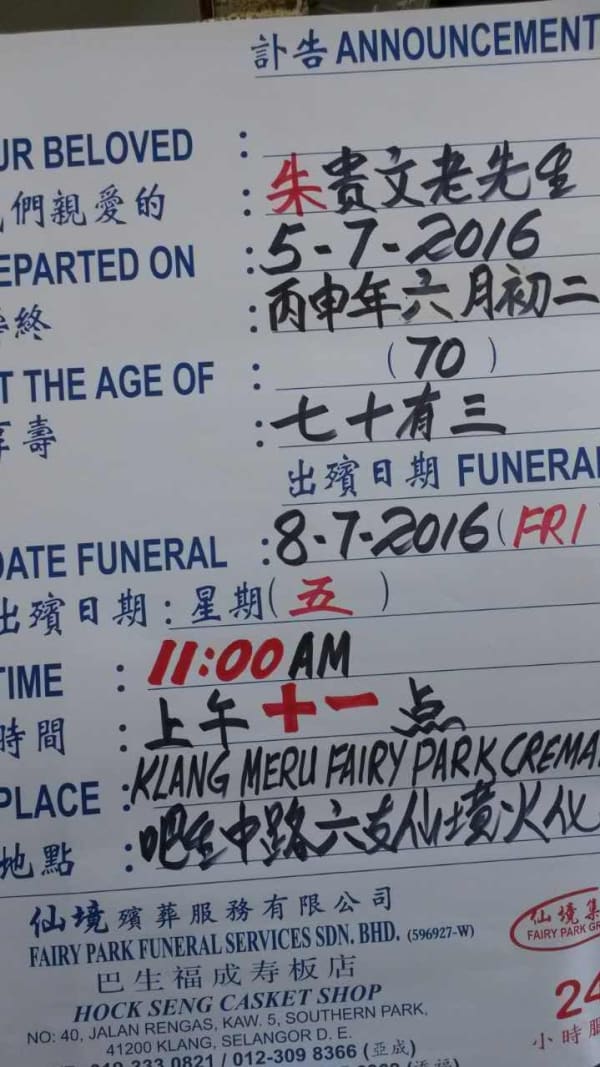 訃告 ANNOUNCEMENT
UR BELOVED :
們親愛的 : 朱貴文老先生
EPARTED ON : 5-7-2016
終 : 丙申年六月初二
T THE AGE OF : (70)
享壽 : 七十有三
出殯日期 FUNERAL
DATE FUNERAL : 8-7-2016 (FRI)
出殯日期 : 星期(五)
TIME : 11:00 AM
時間 : 上午十一点
PLACE : KLANG MERU FAIRY PARK CREMA
地點 : 吧生中路六支仙境火化
仙境殯葬服務有限公司
FAIRY PARK FUNERAL SERVICES SDN. BHD. (596927-W)
仙境集
FAIRY PARK GR
巴生福成寿板店
HOCK SENG CASKET SHOP
NO: 40, JALAN RENGAS, KAW. 5, SOUTHERN PARK,
41200 KLANG, SELANGOR D. E.
333 0821 / 012-309 8366 (亞成)
24
小時服